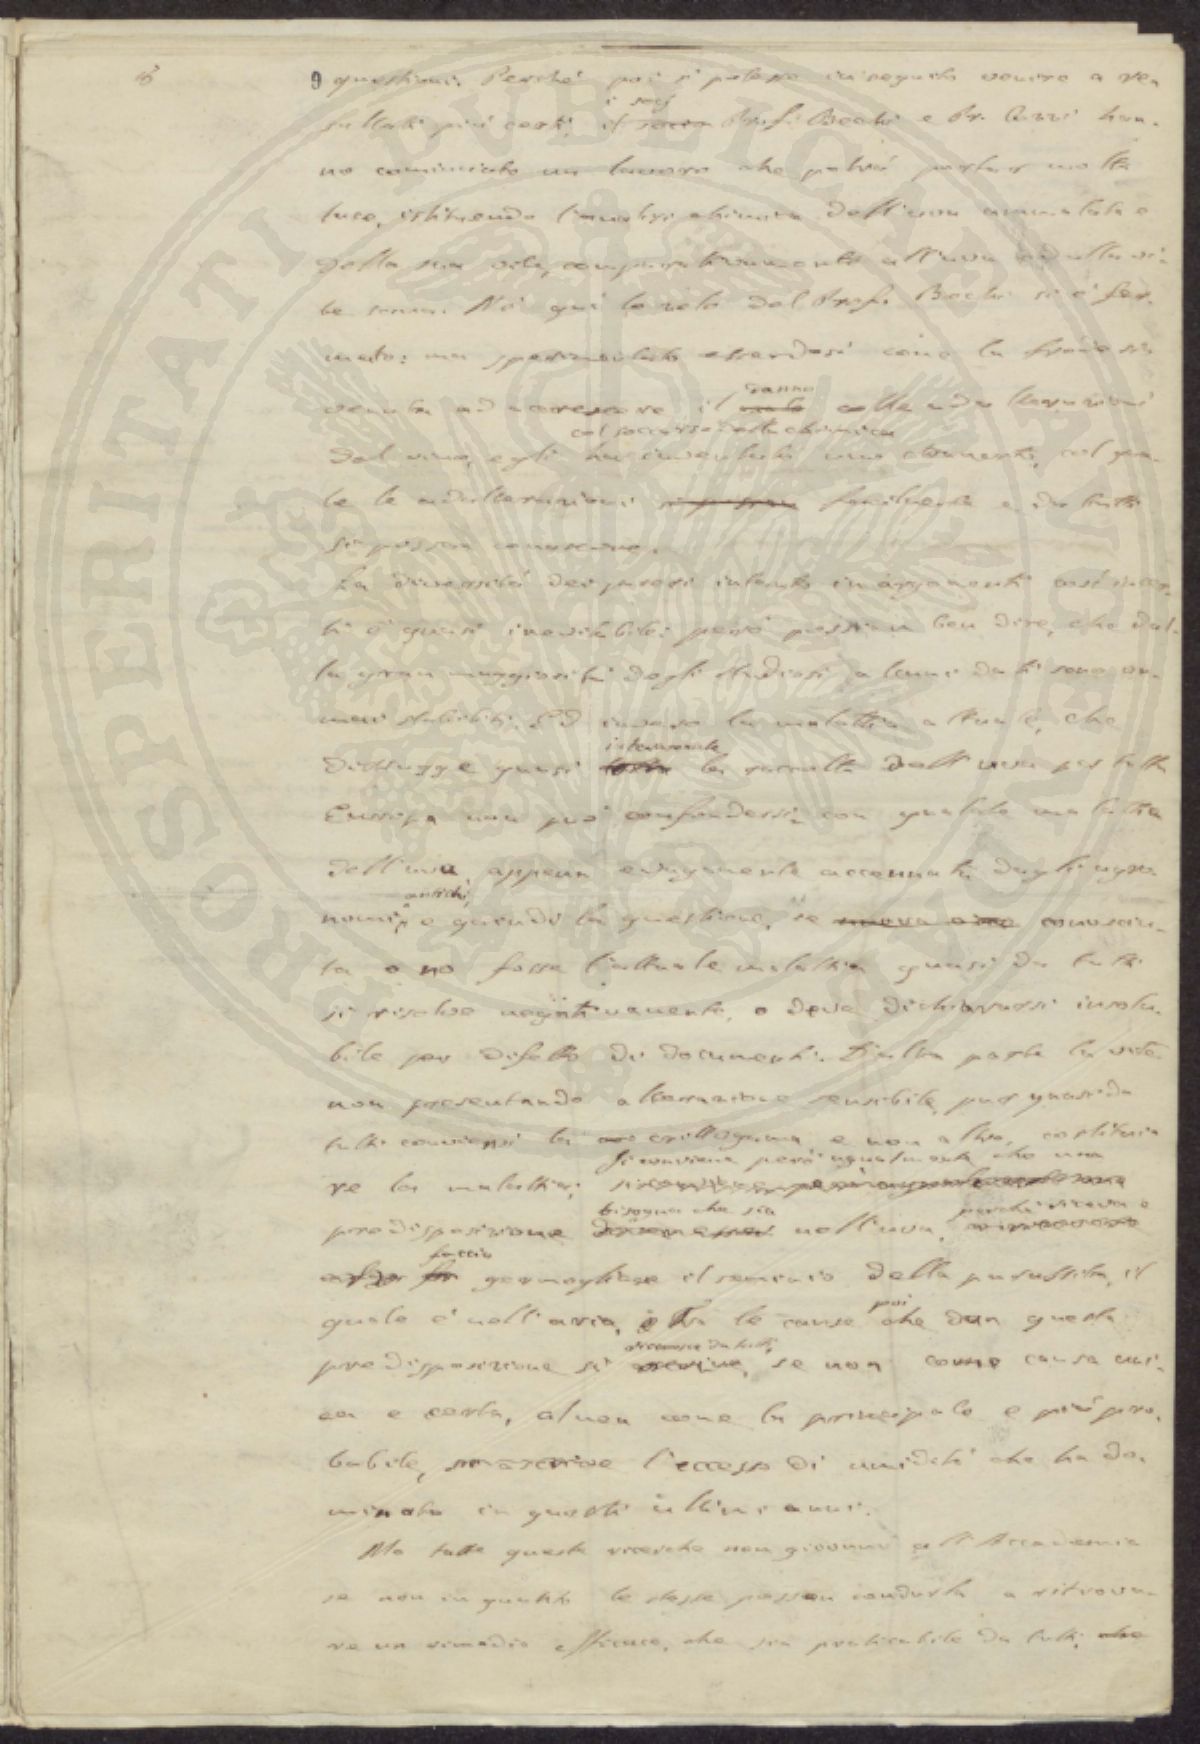 questioni. Perché poi si potesse in seguito venire a re
sultati più certi, i socj il socio Prof. Bechi e Dr. han-
no cominciato un lavoro che potrà portar molta
luce, istituendo l'analisi chimica dell'uva ammalata e
della sua vite, comparativamente all'uva ed alla vi-
te sana. Né qui lo zelo del Prof. Bechi si è fer-
mato: ma sperimentato essendosi come la frode sia
venuta ad accrescere il danno colle adulterazioni
col soccorso della chimica
del vino, egli ha inventato uno strumento, col qua-
le le adulterazioni facilmente e da tutti
si possan conoscere.
La diversità dei pareri intanto in argomenti così incer-
ti è quasi inevitabile: però possiam ben dire, che dal-
la gran maggiorità degli studiosi alcuni dati sono or-
mai stabiliti. Ed invero la malattia attuale, che
distrugge quasi interamente la raccolta dell'uva per tutta
Europa non può confondersi con qualche malattia
dell'uva, appena e vagamente accennata dagli agro
nomi antichi, e quindi la questione, se nuova o no conosciu-
ta o no fosse l'attuale malattia quasi da tutti
si risolve negativamente, o deve dichiararsi insolu-
bile per difetto di documenti. D'altra parte la vite
non presentando alterazione sensibile, pur quasi da
tutti conviensi la crittogama, e non altro, costitui
si conviene però ugualmente che una
re la malattia; si conviene però ugualmente che una
bisogna che sia perché riceva e
predisposizione nell'uva,
faccia germogliare il seminio della parassita, il
quale è nell'aria, e tra le cause poi che dan questa
riconosce da tutti,
predisposizione si ascrive, se non come causa uni-
ca e certa, almen come la principale e più pro-
babile, l'eccesso di umidità che ha do-
minato in questi ultimi anni.
Ma tutte queste ricerche non giovano all'Accademia
se non in quanto le stesse possan condurla a ritrova-
re un rimedio efficace, che sia praticabile da tutti, che
PROSPERITATI PUBLICAE AUGENDAE